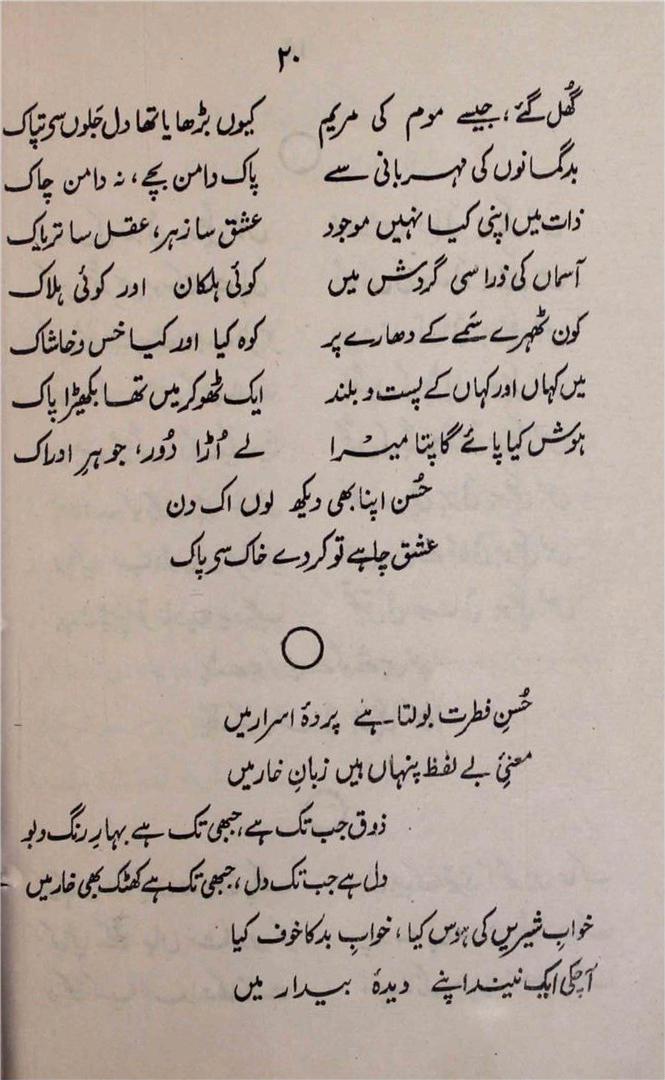 ۲۰
گھُل گئے، جیسے موم کی مریم کیوں بڑھایا تھا دل جَلوں سے تپاک
بدگمانوں کی مہربانی سے پاک دامن بچے، نہ دامن چاک
ذات میں اپنی کیا نہیں موجود عشق سا زہر، عقل سا تریاک
آسماں کی ذرا سی گردش میں کوئی ہلکان اور کوئی ہلاک
کون ٹھہرے سَمے کے دھارے پر کوہ کیا اور کیا خس و خاشاک
میں کہاں اور کہاں کے پست و بلند ایک ٹھوکر میں تھا بکھیڑا پاک
ہوش کیا پائے گا پتا میرا لے اُڑا دُور، جوہرِ ادراک
حُسن اپنا بھی دیکھ لوں اک دن
عشق چاہے تو کر دے خاک سے پاک
حُسنِ فطرت بولتا ہے پردۂ اسرار میں
معنیٔ بے لفظ پنہاں ہیں زبانِ خار میں
ذوق جب تک ہے، جبھی تک ہے بہارِ رنگ و بو
دل ہے جب تک دل، جبھی تک ہے کھٹک بھی خار میں
خوابِ شیریں کی ہوس کیا، خوابِ بد کا خوف کیا
آ چکی ایک نیند اپنے دیدۂ بیدار میں